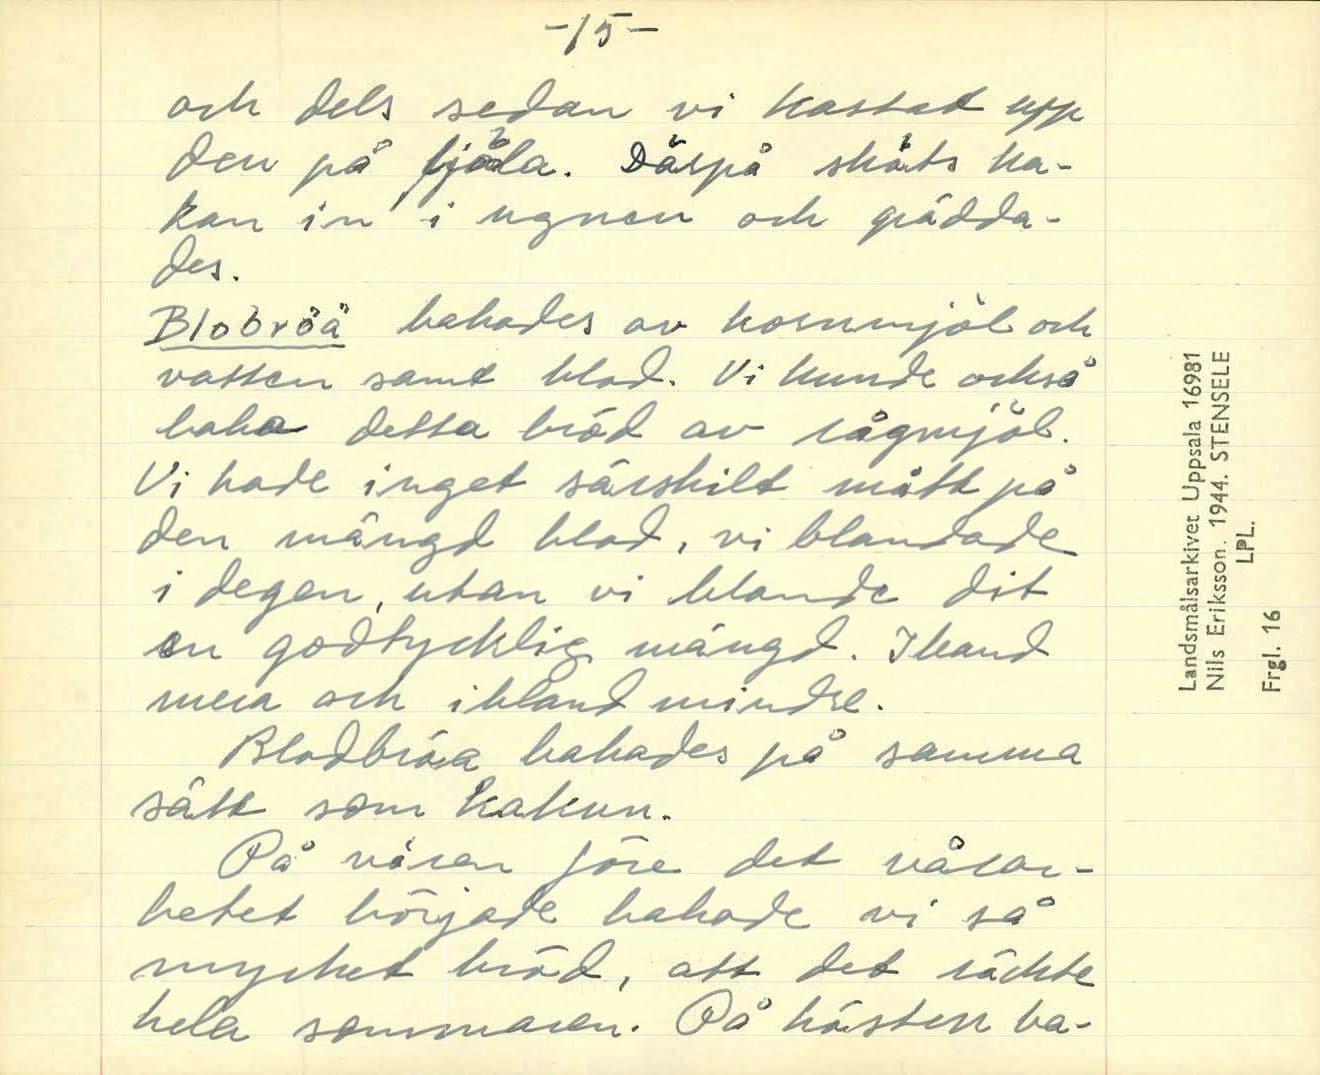 -15-
och dels sedan vi kastat upp
den på fjöla. Därpå sköts ka-
kan in i ugnen och grädda-
des.
Blobröä bakades av kornmjöl och
vatten samt blod. Vi kunde också
baka detta bröd av rågmjöl.
Vi hade inget särskilt mått på
den mängd blod, vi blandade
i degen, utan vi blande dit
en godtycklig mängd. Iband
mera och ibland mindre.
Blodbröa bakades på samma
sätt som kakun.
På våren före det vårar-
betet började bakade vi så
mycket bröd, att det räckte
hela sommaren. På hösten ba-
Landsmålsarkivet Uppsala 16981
Nils Eriksson. 1944. STENSELE
LPL.
Frgl. 16